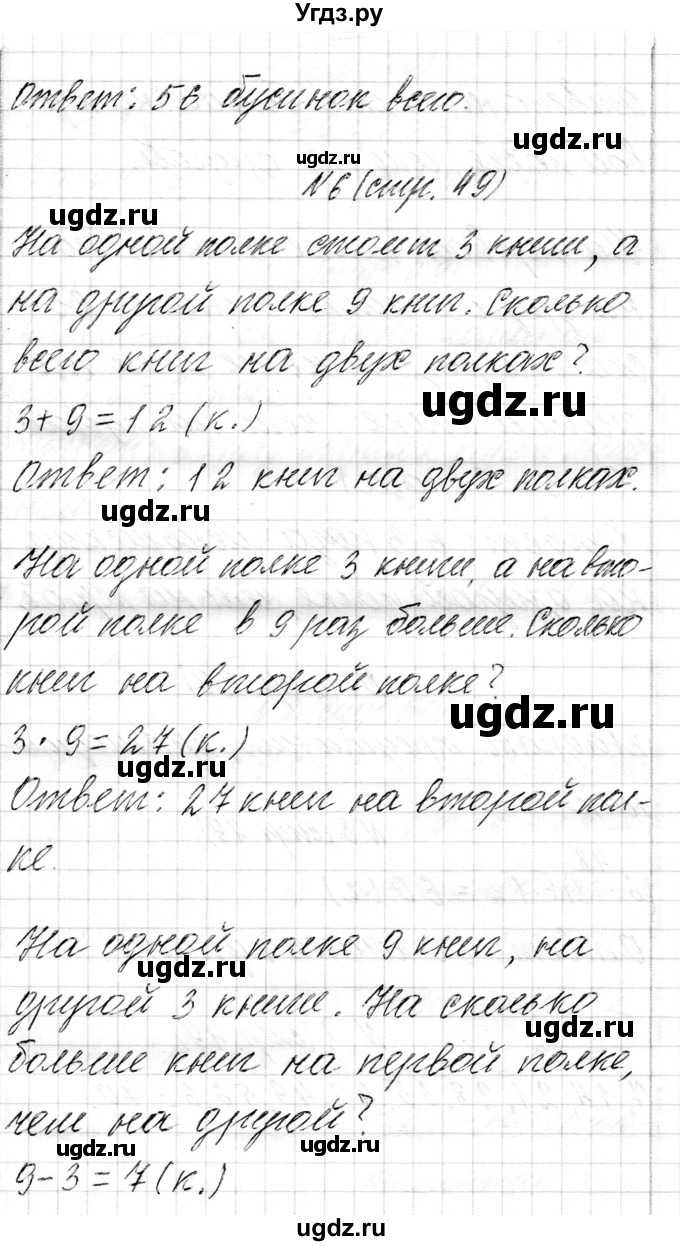 Угдз.ру
Ответ: 56 бусинок всего.
ugdz.ru
ugdz.ru
№6 (стр. 49)
ugdz.ru
На одной полке стоит 3 книги, а
на другой полке 9 книг. Сколько
всего книг на двух полках?
ugdz.ru
3+9=12 (к.)
Ответ: 12 книг на двух полках.
ugdz.ru
На одной полке 3 книги, а на вто-
рой полке в 9 раз больше. Сколько
книг на второй полке?
ugdz.ru
3·9=27 (к.)
ugdz.ru
Ответ: 27 книг на второй пол-
ке.
На одной полке 9 книг, на
ugdz.ru
другой 3 книги. На сколько
ugdz.ru
больше книг на первой полке,
чем на другой?
ugdz.ru
ugdz.ru
9-3=7 (к.)
ugdz.ru